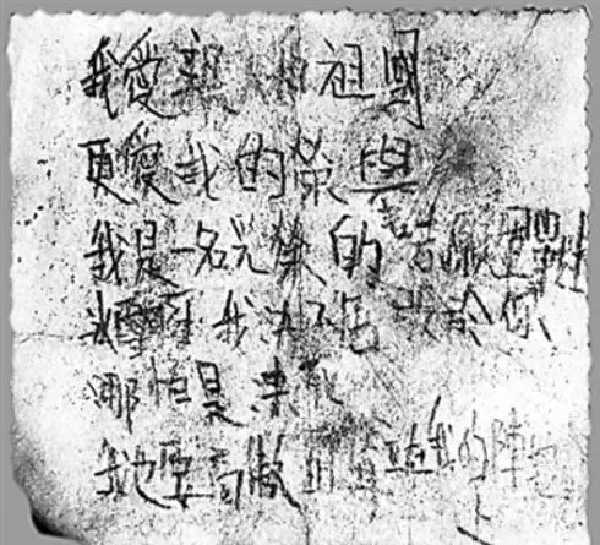 我愛親人和祖國
更愛我的榮譽
我是一名光榮的志願軍
冰雪啊我決不屈服於你
哪怕是凍死
我也要高傲的立在我的陣地上